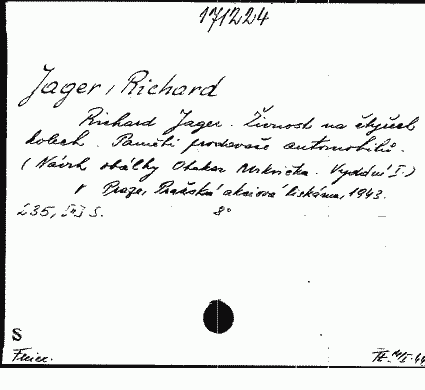 171224
Jager, Richard
Richard Jager. Živnost na čtyřech
kolech. Paměti prodavače automobilů.
(Návrh obálky Otakar Mrkvička. Vydání I.)
V Praze, Pražská akciová tiskárna, 1943.
235, [4] s. 8°
S